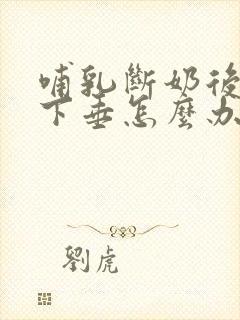 哺乳斷奶後
下垂怎麼办
劉虎